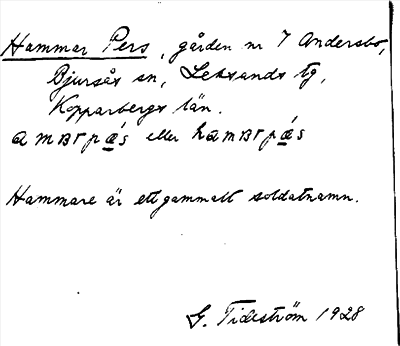 Hammar Pers, gården nr 7 Andersbo,
Bjursås sn, Leksands tg,
Kopparbergs län.
amarpǽ̱s eller hamarpǽ̱s
Hammare är ett gammalt soldatnamn.
G. Tideström 1928